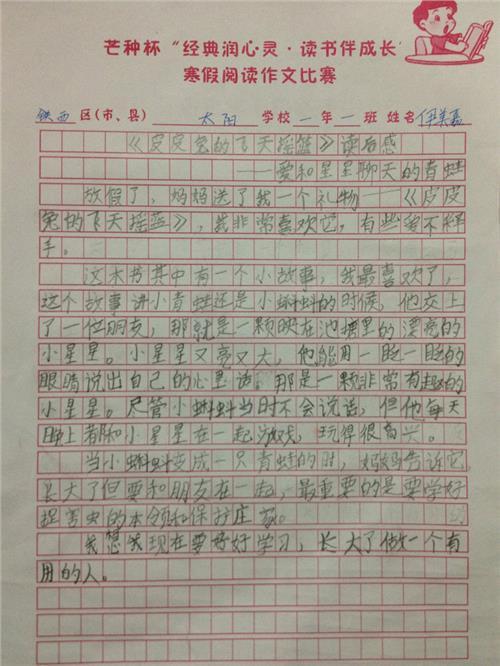 芒种杯“经典润心灵·读书伴成长”
寒假阅读作文比赛
铁西区(市、县) 太阳 学校 一年 一班 姓名 伊美嘉
《皮皮兔的飞天摇篮》读后感
——爱和星星聊天的青蛙
放假了，妈妈送了我一个礼物——《皮皮
兔的飞天摇篮》，我非常喜欢它，有些爱不释
手。
这本书其中有一个小故事，我最喜欢了，
这个故事讲小青蛙还是小蝌蚪的时候，他交上
了一位朋友，那就是一颗映在池塘里的漂亮的
小星星。小星星又亮又大，他能用一眨一眨的
眼睛说出自己的心里话，那是一颗非常有趣的
小星星。尽管小蝌蚪当时不会说话，但他每天
晚上都和小星星在一起游戏，玩得很高兴。
当小蝌蚪变成一只青蛙的时，妈妈告诉它，
长大了但要和朋友在一起，最重要的是要学好
捉害虫的本领和保护庄家。
我想我现在要好好学习，长大了做一个有
用的人。